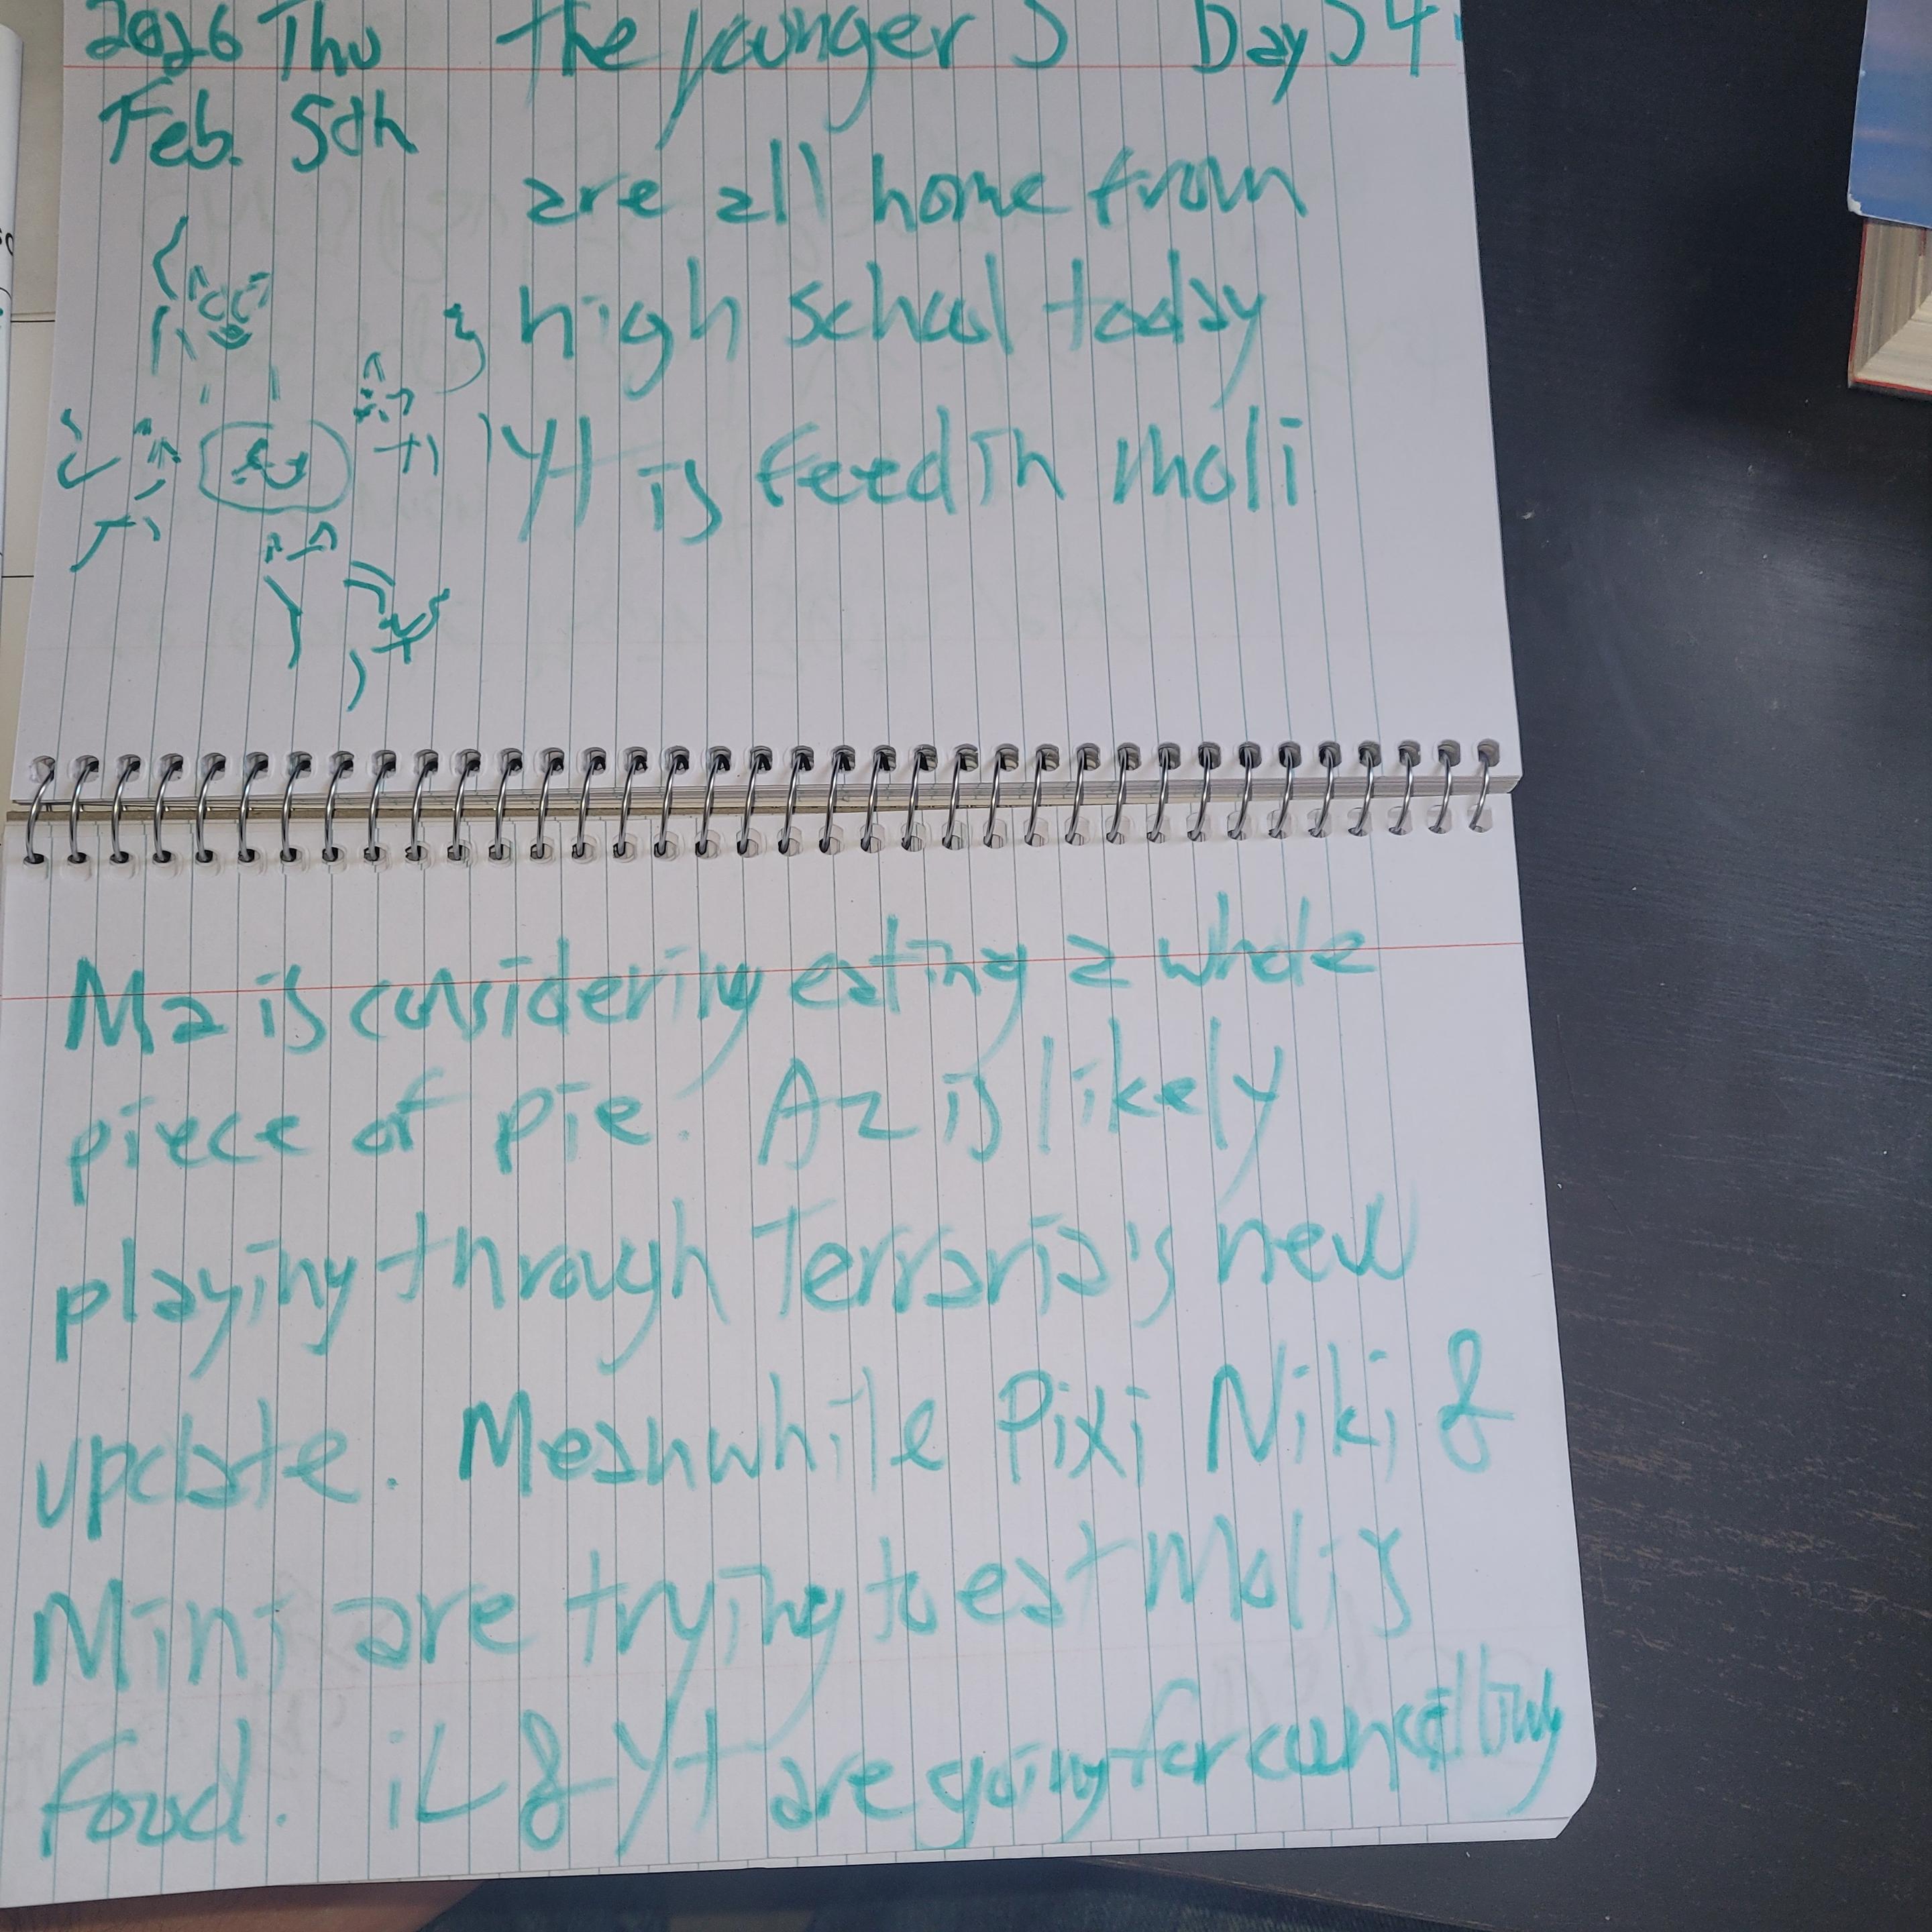 2026 Thu the younger 3 Day 54
Feb. 5th
are all home from
high school today
Yt is feedin Moli
Ma is considering eating a whole
piece of pie. Az is likely
playing through Terraria's new
update. Meanwhile Pixi Niki &
Mini are trying to eat Moli's
food. iL & Yt are going for